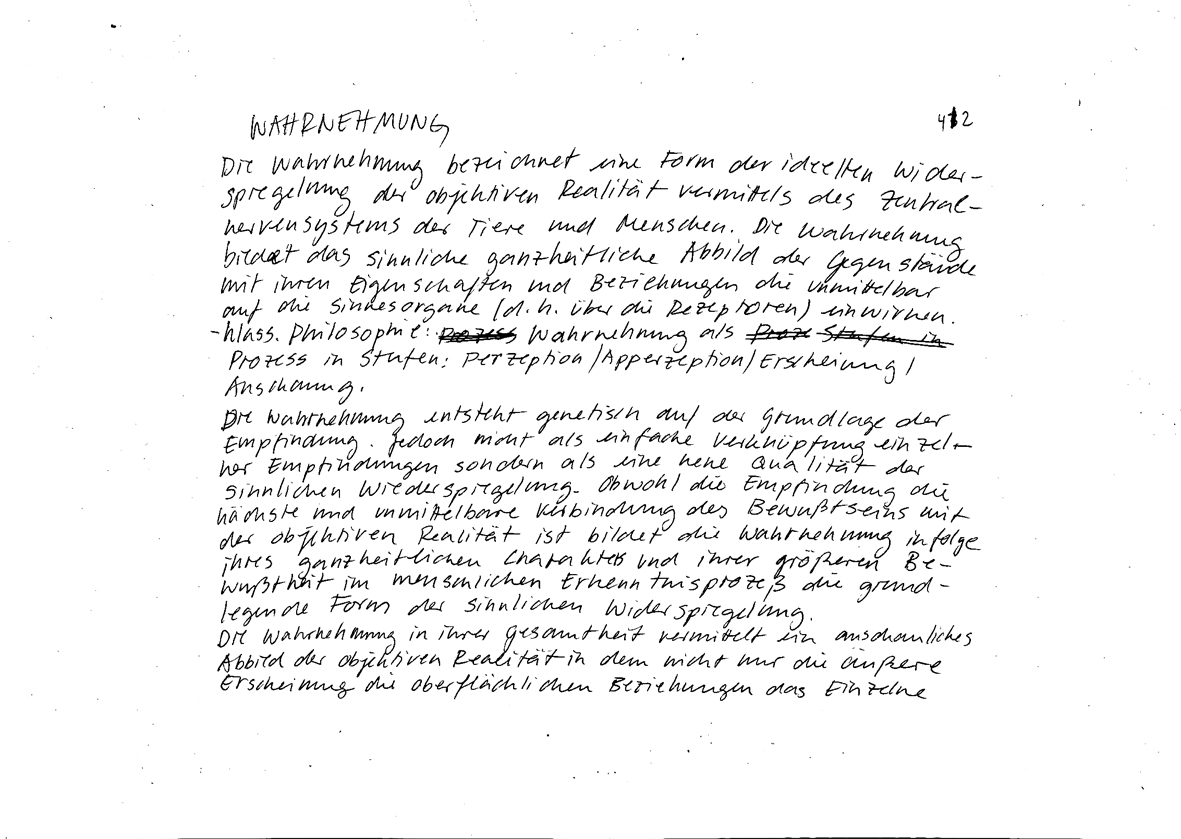 WAHRNEHMUNG 412
Die Wahrnehmung bezeichnet eine Form der ideellen Wider-
spiegelung der objektiven Realität vermittels des Zentral-
nervensystems der Tiere und Menschen. Die Wahrnehmung
bildet das sinnliche ganzheitliche Abbild der Gegenstände
mit ihren Eigenschaften und Beziehungen die unmittelbar
auf die Sinnesorgane (d.h. über die Rezeptoren) einwirken.
-klass. Philosophie: Prozess Wahrnehmung als Proze Stufen in
Prozess in Stufen: Perzeption/Apperzeption/Erscheinung/
Anschauung.
Die Wahrnehmung entsteht genetisch auf der Grundlage der
Empfindung. Jedoch nicht als einfache Verknüpfung einzel-
ner Empfindungen sondern als eine neue Qualität der
sinnlichen Wiederspiegelung. Obwohl die Empfindung die
nächste und unmittelbare Verbindung des Bewußtseins mit
der objektiven Realität ist bildet die Wahrnehmung infolge
ihres ganzheitlichen Charakters und ihrer größeren Be-
wußtheit im menschlichen Erkenntnisprozeß die grund-
legende Form der sinnlichen Widerspiegelung.
Die Wahrnehmung in ihrer Gesamtheit vermittelt ein anschauliches
Abbild der objektiven Realität in dem nicht nur die äußere
Erscheinung die oberflächlichen Beziehungen das Einzelne